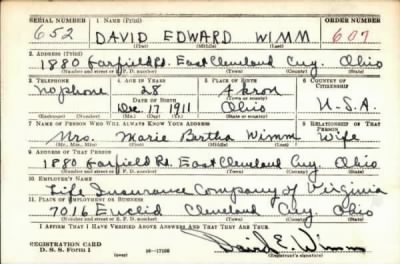 SERIAL NUMBER 1. NAME (Print) ORDER NUMBER
652 DAVID EDWARD WIMM 607
(First) (Middle) (Last)
2. ADDRESS (Print)
1880 Garfield Rd. East Cleveland Cuy. Ohio
(Number and street or R. F. D. number) (Town) (County) (State)
3. TELEPHONE 4. AGE IN YEARS 5. PLACE OF BIRTH 6. COUNTRY OF CITIZENSHIP
No phone 28 Akron
DATE OF BIRTH (Town or county)
Dec 17 1911 Ohio U.S.A.
(Exchange) (Number) (Mo.) (Day) (Yr.) (State or country)
7. NAME OF PERSON WHO WILL ALWAYS KNOW YOUR ADDRESS 8. RELATIONSHIP OF THAT PERSON
Mrs. Marie Bertha Wimm Wife
(Mr., Mrs., Miss) (First) (Middle) (Last)
9. ADDRESS OF THAT PERSON
1880 Garfield Rd. East Cleveland Cuy. Ohio
(Number and street or R. F. D. number) (Town) (County) (State)
10. EMPLOYER'S NAME
Life Insurance Company of Virginia
11. PLACE OF EMPLOYMENT OR BUSINESS
7016 Euclid Cleveland Cuy. Ohio
(Number and street or R. F. D. number) (Town) (County) (State)
I AFFIRM THAT I HAVE VERIFIED ABOVE ANSWERS AND THAT THEY ARE TRUE.
REGISTRATION CARD
D. S. S. FORM 1 David E. Wimm
(Registrant's signature)